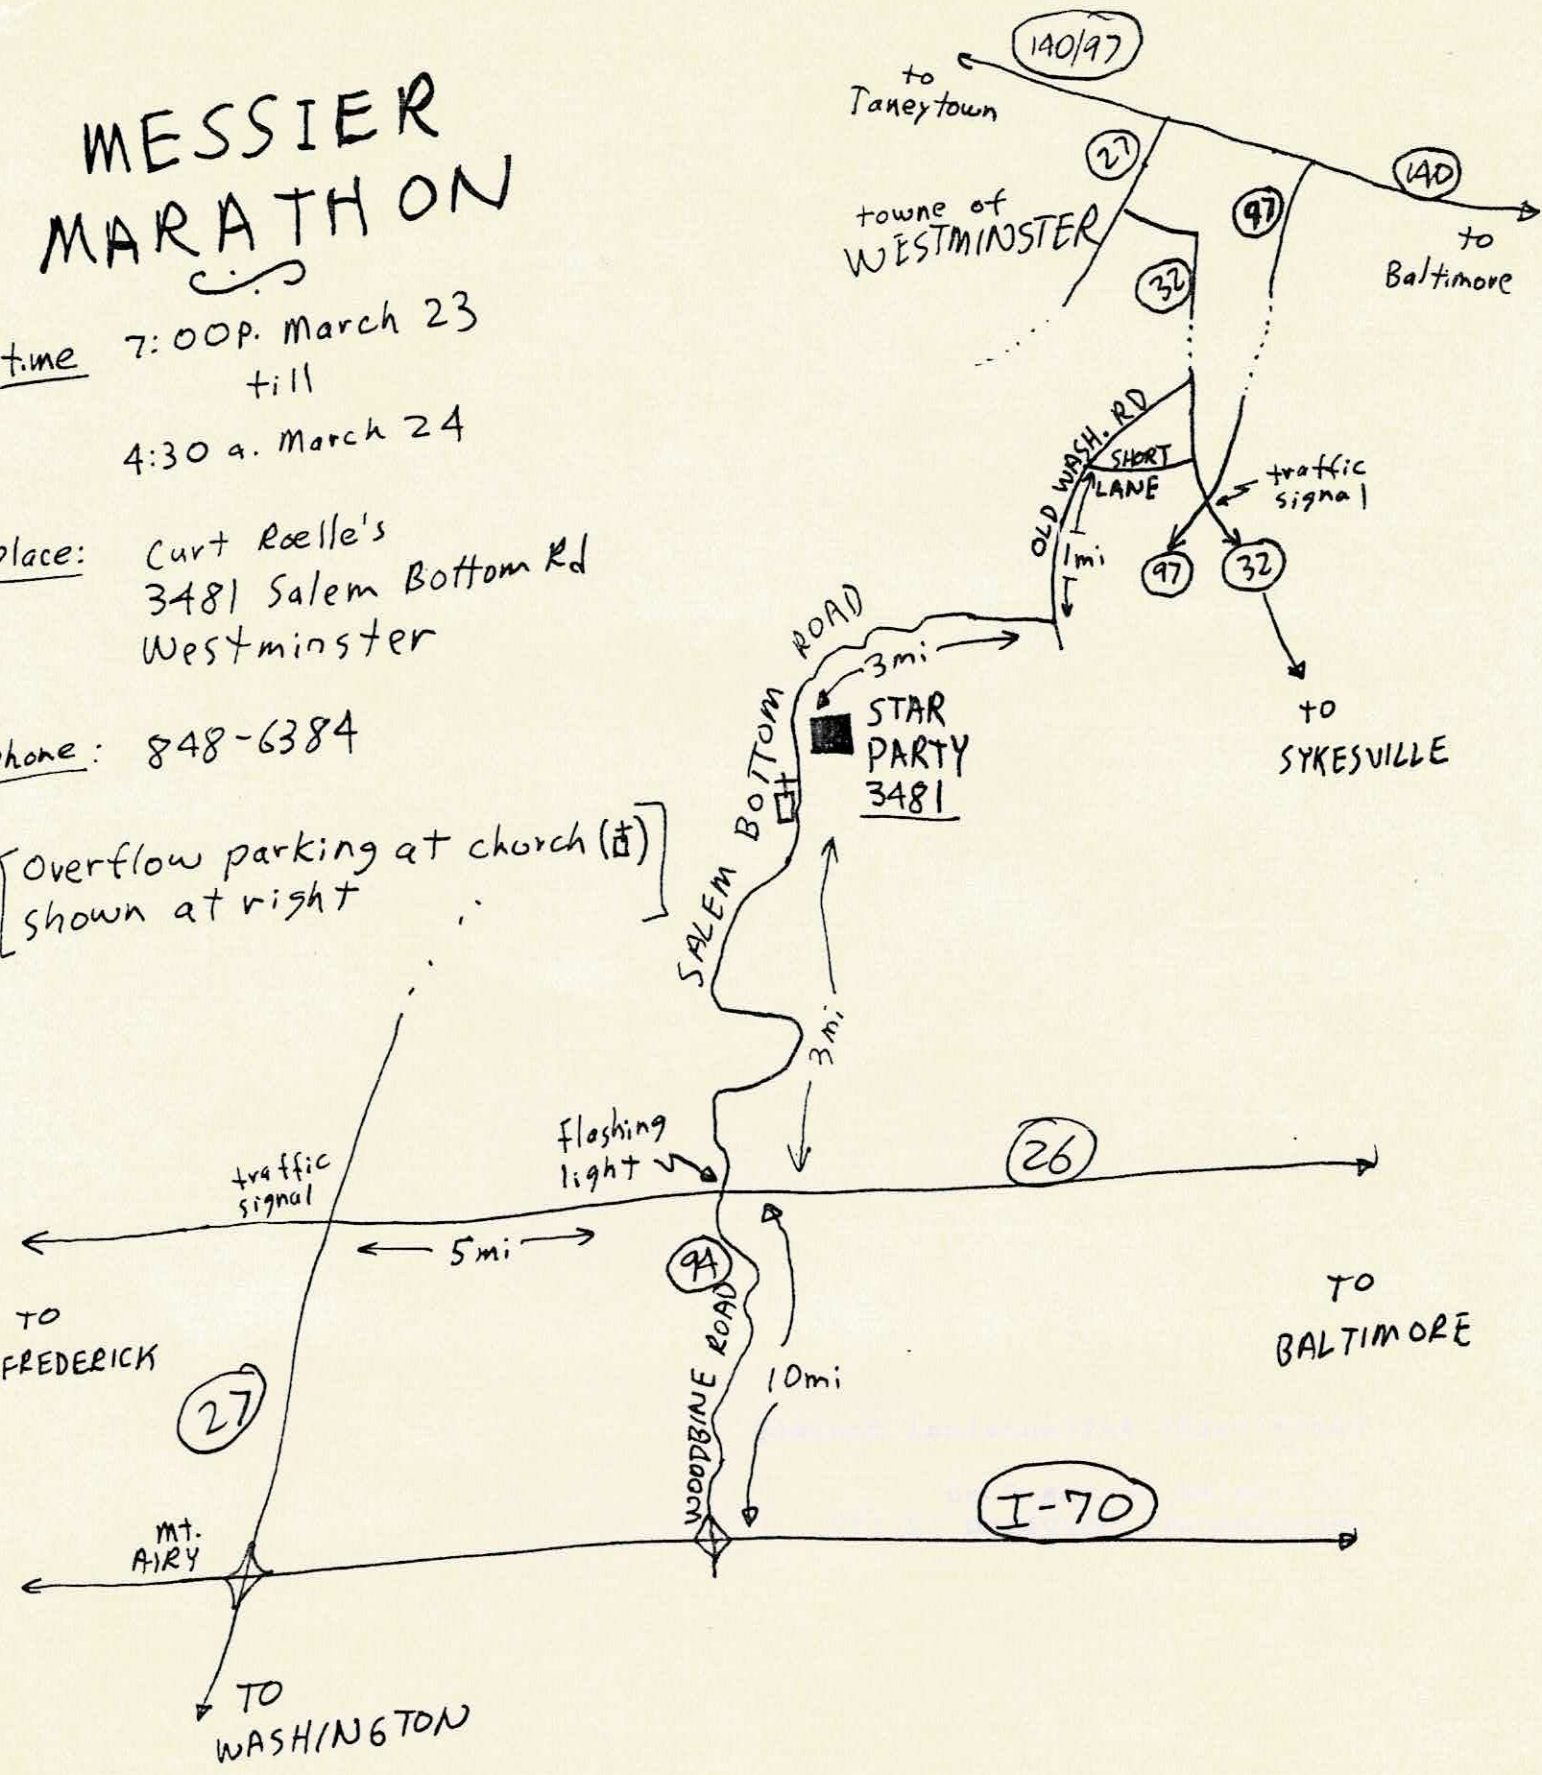 MESSIER
MARATHON
time 7:00p. March 23
till
4:30 a. March 24
place: Curt Roelle's
3481 Salem Bottom Rd
Westminster
phone: 848-6384
[Overflow parking at church ( )
shown at right]
140/97
to
Taneytown
27
140
97
to
Baltimore
towne of
WESTMINSTER
32
OLD WASH. RD
SHORT
LANE
traffic
signal
1mi
97
32
to
SYKESVILLE
SALEM BOTTOM ROAD
3mi
STAR
PARTY
3481
3mi
flashing
light
26
traffic
signal
5mi
94
TO
FREDERICK
TO
BALTIMORE
27
WOODBINE ROAD
10mi
I-70
Mt.
AIRY
TO
WASHINGTON